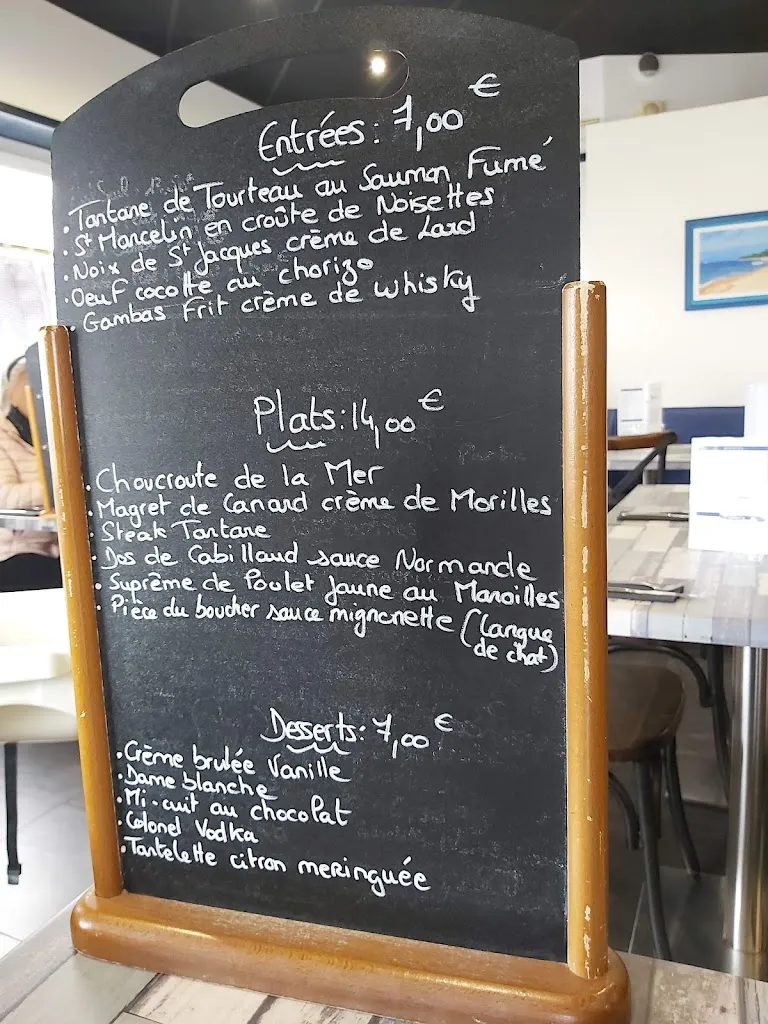 Entrées: 7,00 €
• Tartare de Tourteau au Saumon Fumé
• St Marcelin en croûte de Noisettes
• Noix de St Jacques crème de Lard
• Oeuf cocotte au chorizo
• Gambas Frit crème de whisky
Plats: 14,00 €
• Choucroute de la Mer
• Magret de Canard crème de Morilles
• Steak Tartare
• Dos de Cabillaud sauce Normande
• Suprême de Poulet Jaune au Maroilles
• Pièce du boucher sauce mignonette (langue
de chat)
Desserts: 7,00 €
• Crème brulée Vanille
• Dame blanche
• Mi-cuit au chocolat
• Colonel Vodka
• Tartelette citron meringuée